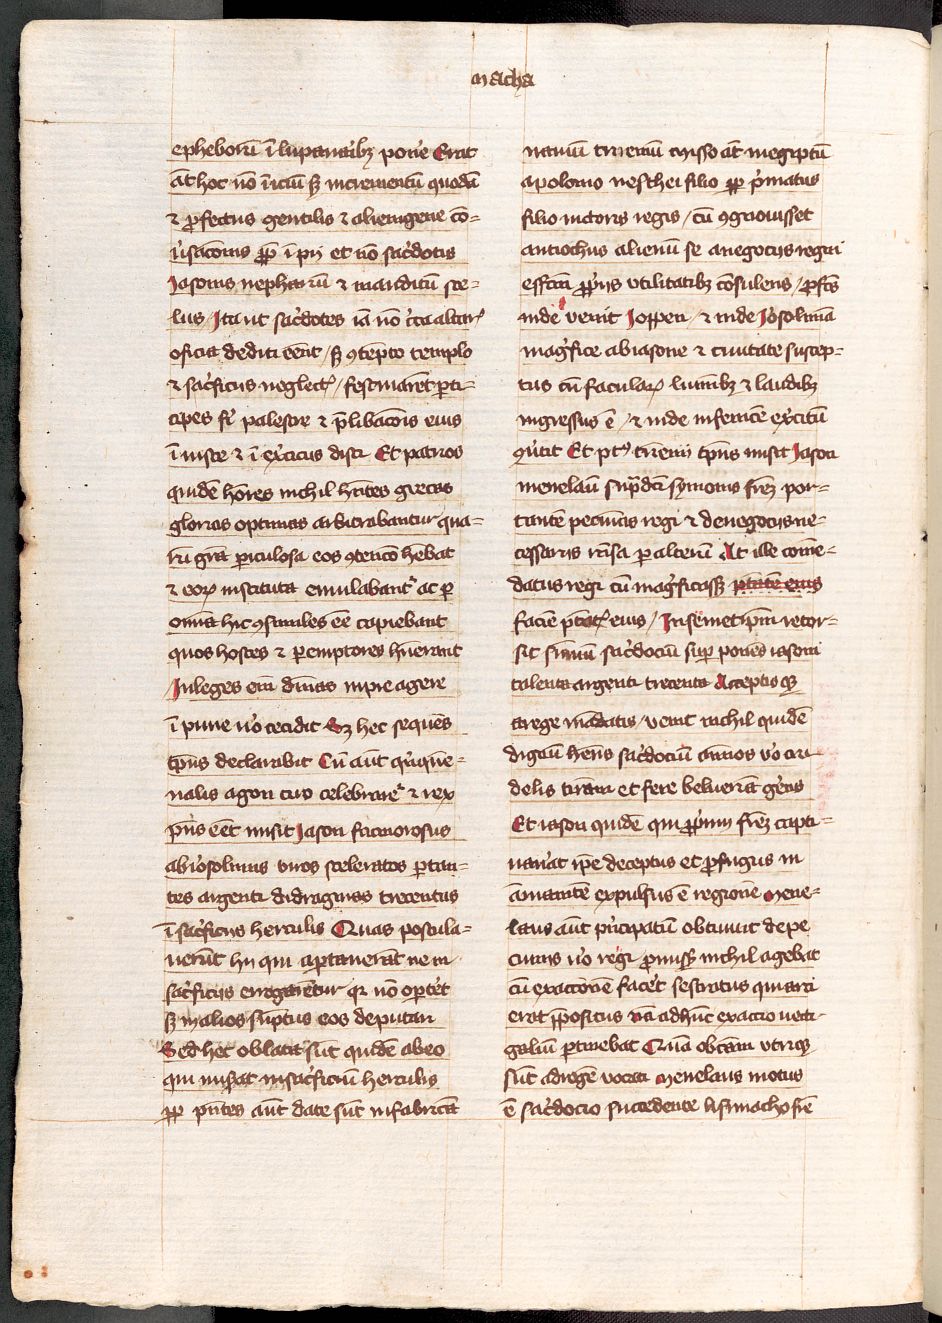 macha
epheborū ī lupanaribꝫ ponē Erat
āt hoc nō īiciū sꝫ incrementū quodā
⁊ ꝓfectus gentilis ⁊ alienigene cō-
ūsacōnis ꝓp̄ īpij et nō sac̄dotis
Jasonis nepharū ⁊ inauditū sce-
lus / Ita ut sac̄dotes iā nō c̄ca altar᷒
oficia dediti eēnt / sꝫ ꝯtēpto templo
⁊ sac̄ficiis neglect᷒ / festinarēt ꝑti-
cipes fi᷒ palestre ⁊ p̄libacōis eius
ī iuste ⁊ ī ex̄ciciis disci Et patrios
quidē hōres nichil hn̄tes grecas
glorias optimas arbitrabantur qua-
rū grā ꝑiculosa eos ꝯtencō hēbat
⁊ eoꝝ instituta emulabant᷒ ac ꝑ
om̄ia hic ꝯsimiles eē cupiebant
quos hostes ⁊ ꝑemptores hūerant
In leges em̄ diuīas impie agere
ī pune ūo cecidit Sꝫ hec sequēs
tp̄us declarabit Cū aut q̄nquēn-
nalis agon tiro celebrare᷒ ⁊ rex
p̄ns eēt misit Jason facinorosus
ab ierosolimis viros sceleratos portan-
tes argenti didragmas trecentas
ī sac̄ficiis herculis Quas postula-
uerūt hij qui aptauerāt ne in
sac̄ficiis erogarētur q̄ nō oportēt
sꝫ in alios sūptus eos deputari
Sed hec oblata sūt quidē ab eo
qui misat in sac̄ficiū herculis
ꝓp̄ p̄ntes aūt date sūt in fabricā
nauiū triremiū Misso āt in egiptū
apolonio neschei filio ꝓp̄ p̄matus
filio metoris regis / cū ꝯgnouisset
antiochus alienū se a negocijs regni
effcm̄ ꝓp̄ijs vtilitatibꝫ cōsulens / ꝓfc̄s
inde venit Joppen / ⁊ inde Jeōsolimā
mag̃fice ab iasone ⁊ ciuitate suscep-
tus cū faculaꝝ luminibꝫ ⁊ laudibꝫ
ingressus ē / ⁊ inde in fenicē ex̄citū
ꝯūtit Et pt᷒ triēnij tp̄us misit Jason
menelaū sup̄dc̄i symonis fr̄eꝫ por-
tantē pecunias regi ⁊ de negocijs ne-
cessarijs rn̄sa ꝑ alterū At ille com̄e-
datus regi cū mag̃ficassꝫ p̄tatē eius
faciē p̄tat᷒ eius / In semetip̄m retor-
sit sūmū sac̄dociū suꝑ ponēs iasoni
talenta argenti trecenta Acceptis qꝫ
a rege mādatis / venit nichil quidē
dignū hens sac̄dociū animos ūo cru
delis tiranni et fere beluerā gerēs
Et iason quidē qui ꝓp̄iuꝫ fr̄eꝫ capti-
uauat ip̄e deceptus et ꝓfugus in
āmanitē expulsus ē regionē Mene-
laus aūt p̄ncipatū obtinuit de pe
cuniis ūo regi ꝓmissꝫ nichil agebat
cū exaccōnē facēt sostratus qui arci
erat p̄positus nā ad hūc exaccio vecti-
galiū ꝑtinebat Quā ob cām vtriqꝫ
sūt ad regē vocati Menelaus motus
ē sac̄docio succedente lisimacho fr̄e